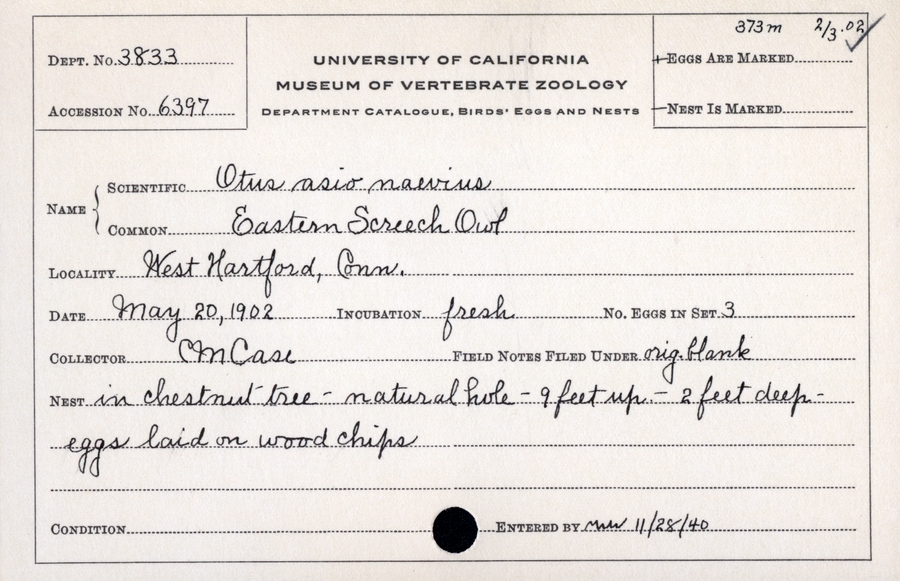 373m 2/3.02
DEPT. No. 3833
UNIVERSITY OF CALIFORNIA
EGGS ARE MARKED
MUSEUM OF VERTEBRATE ZOOLOGY
ACCESSION No. 6397
DEPARTMENT CATALOGUE, BIRDS' EGGS AND NESTS
NEST IS MARKED
NAME
SCIENTIFIC Otus asio naevius
COMMON Eastern Screech Owl
LOCALITY West Hartford, Conn.
DATE May 20, 1902 INCUBATION fresh No. EGGS IN SET 3
COLLECTOR CM Case FIELD NOTES FILED UNDER orig. blank
NEST in chestnut tree - natural hole - 9 feet up. - 2 feet deep -
eggs laid on wood chips
CONDITION ENTERED BY 11/28/40